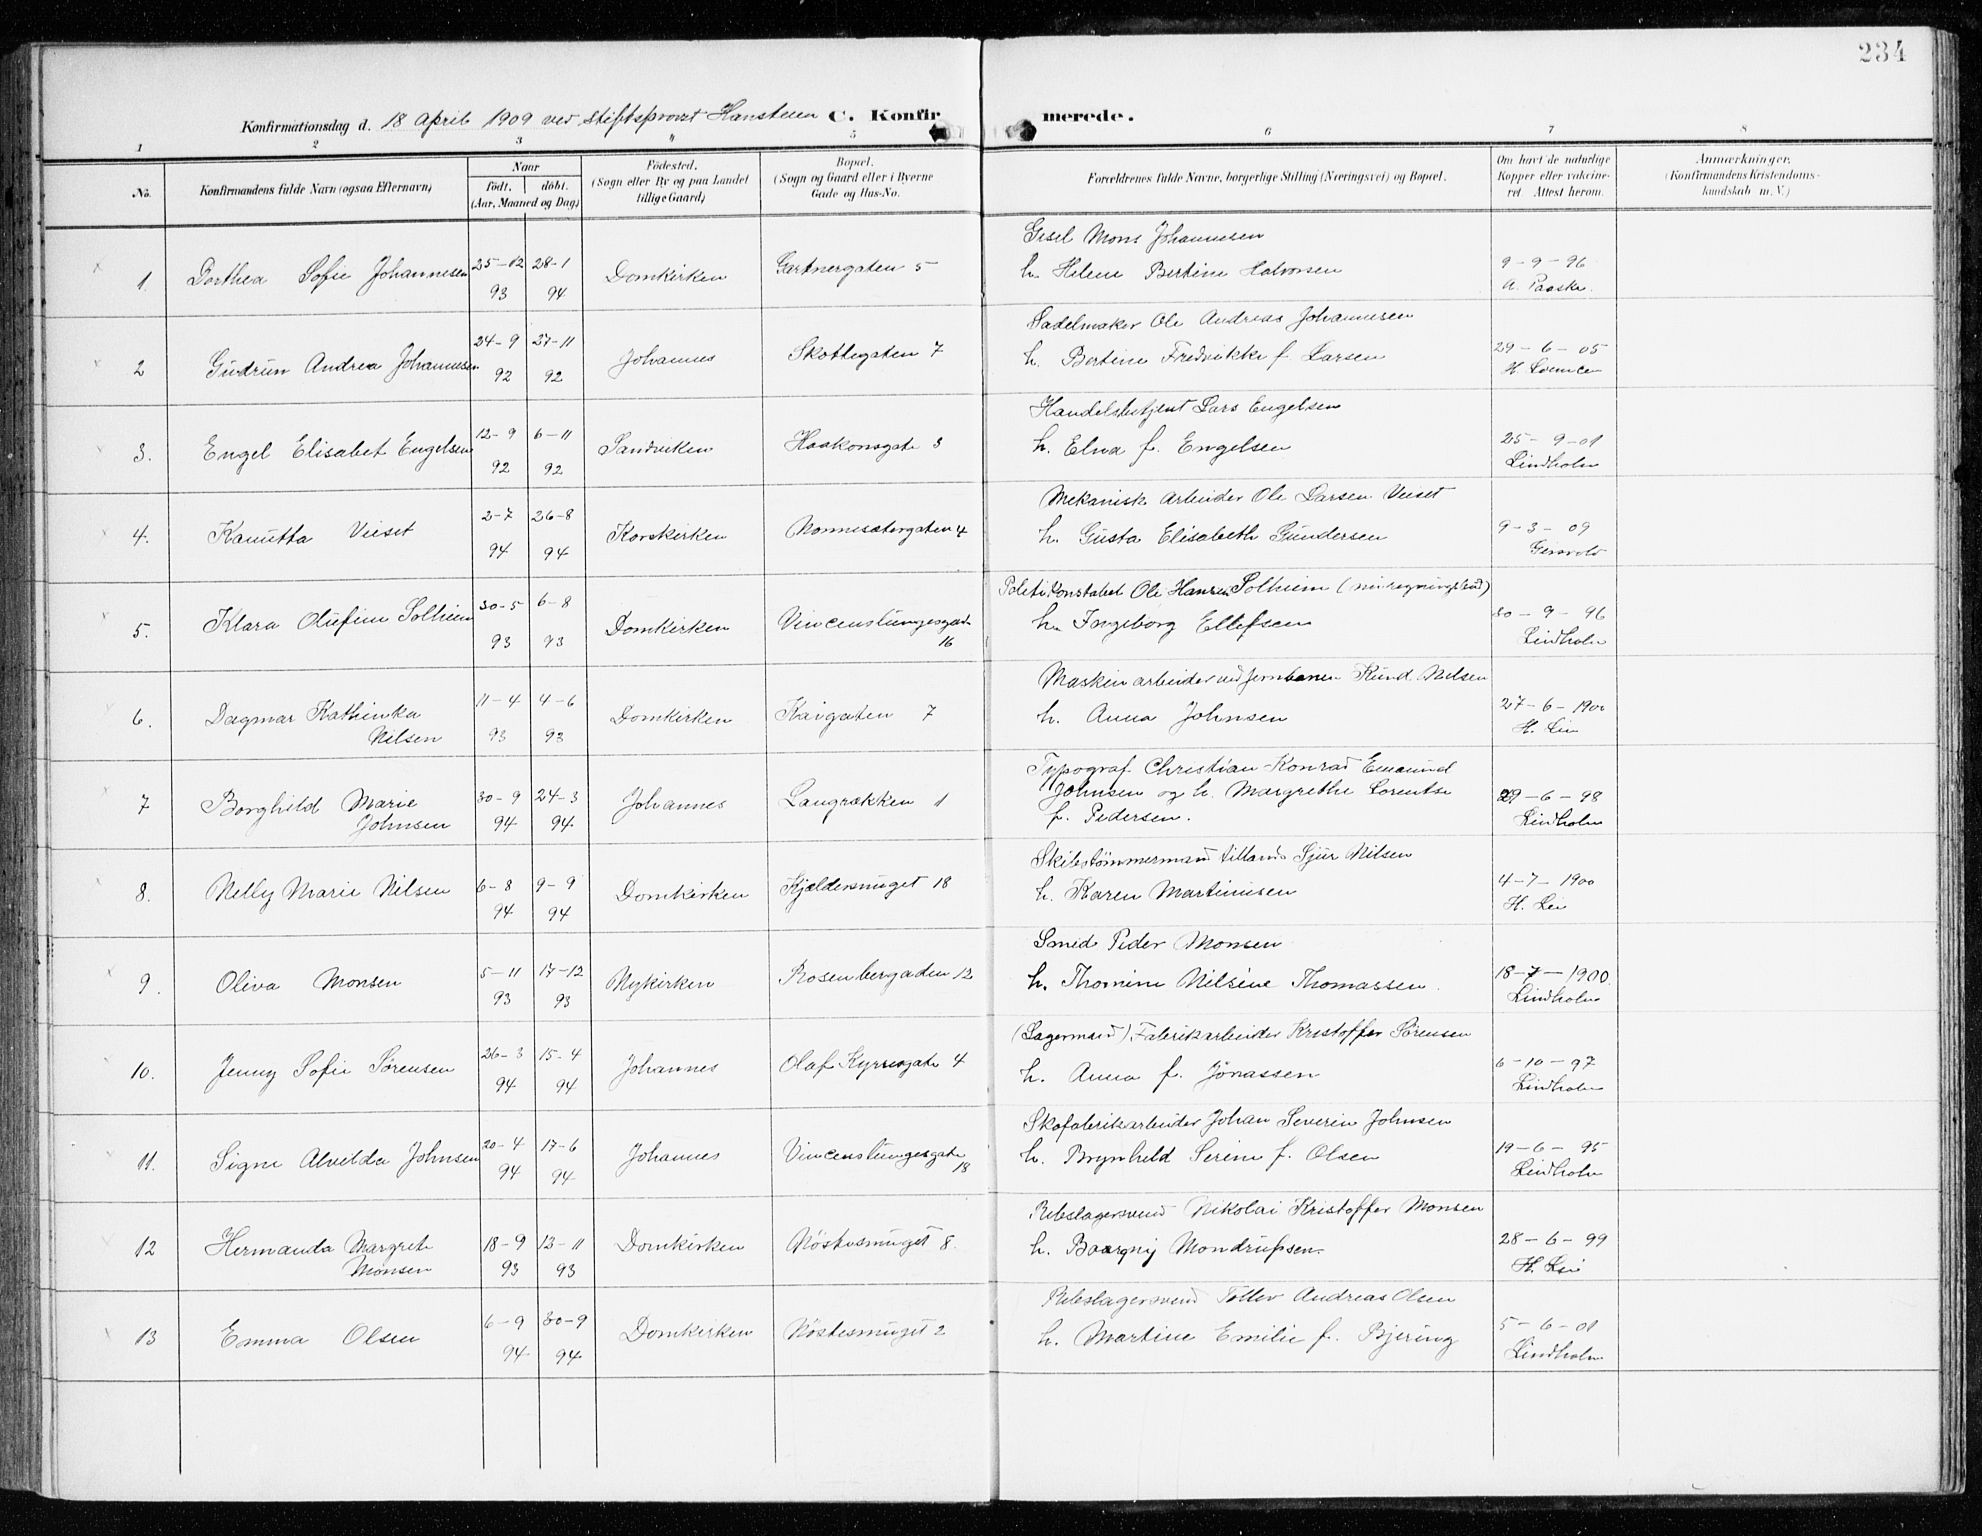 234
Konfirmationsdag d. 18 April 1909 ved stiftsprovst Hansteen C. Konfirmerede.
1 2 3 4 5 6 7 8
No. Konfirmandens fulde Navn (ogsaa Efternavn) Naar født. døbt. (Aar, Maaned og Dag) Fødested. (Sogn eller By og paa Landet tillige Gaard) Bopæl. (Sogn og Gaard eller i Byerne Gade og Hus-No. Forældrenes fulde Navne, borgerlige Stilling (Næringsvei) og Bopæl. Om havt de naturlige Kopper eller vakcineret. Attest herom. Anmærkninger. (Konfirmandens Kristendomskundskab m. V.)
1. Dorthea Sofie Johannesen 25-12 93 28-1 94 Domkirken Gartnergaten 5 Mons Johannesen
h. Helene Bertine Halvorsen 9-9-96 A. Paaske.
2 Gudrun Andrea Johannesen 24-9 92 27-11 92 Johannes Skottegaten 7 Sadelmaker Ole Andreas Johannesen
h. Bertine Fredrikke f. Larsen 29-6-05 H.
3. Engel Elisabet Engelsen 12-9 92 6-11 92 Sandviken Haakonsgate 3 Handelsbetjent Lars Engelsen
h. Elna f. Engelsen 25-9-01 Lindholm
4. Kanutta Veiset 2-7 94 26-8 94 Korskirken Nonnesætergaten 4 Mekanisk arbeider Ole Larsen Veiset
h. Gusta Elisabeth Gundersen 9-3-09
5. Klara Olufine Solheim 30-5 93 6-8 93 Domkirken Vincenslungesgate 16 Politikonstabel Ole Hansen Solheim
h. Ingeborg Ellefsen 30-9-96 Lindholm
6. Dagmar Kathinka Nilsen 11-4 93 4-6 93 Domkirken Kaigaten 7 Maskinarbeider ved jernbanen Knud Nilsen
h. Anna Johnsen 27-6-1900 H. Lie
7 Borghild Marie Johnsen 30-9 94 24-3 94 Johannes Langrækken 1 Typograf Christian Konrad Emanuel
Johnsen og h. Margrethe Lorentse
f. Pedersen. 29-6-98 Lindholm
8. Nelly Marie Nilsen 6-8 94 9-9 94 Domkirken Kjeldersmuget 18 Skibstømmermand tillands Sjur Nilsen
h. Karen Martinisen 4-7-1900 H. Lie
9. Oliva Monsen 5-11 93 17-12 93 Nykirken Rosenbergaden 12 Smed Peder Monsen
h. Thomine Nilsine Thomassen. 18-7-1900. Lindholm
10. Jenny Sofie Sørensen 26-3 94 15-4 94 Johannes Olaf Kyrresgate 4 (Lagermand) Fabrikarbeider Kristoffer Sørensen
h. Anna f. Jonassen 6-10-97 Lindholm
11. Signe Alvilda Johnsen 20-4 94 17-6 94 Johannes Vincenslungesgate 18 Skofabrikarbeider Johan Severin Johnsen
h. Brynhild Serine f. Olsen 19-6-95 Lindholm
12 Hermanda Margrete Monsen 18-9 93 13-11 93 Domkirken Nöstesmuget 8. Rebslagersvend Nikolai Kristoffer Monsen
h. Mondrupsen. 28-6-99 H. Lie
13 Emma Olsen 6-9 94 30-9 94 Domkirken Nöstesmuget 2 Rebslagersvend Tollev Andreas Olsen
h. Martine Emilie f. Bjering 5-6-01 Lindholm